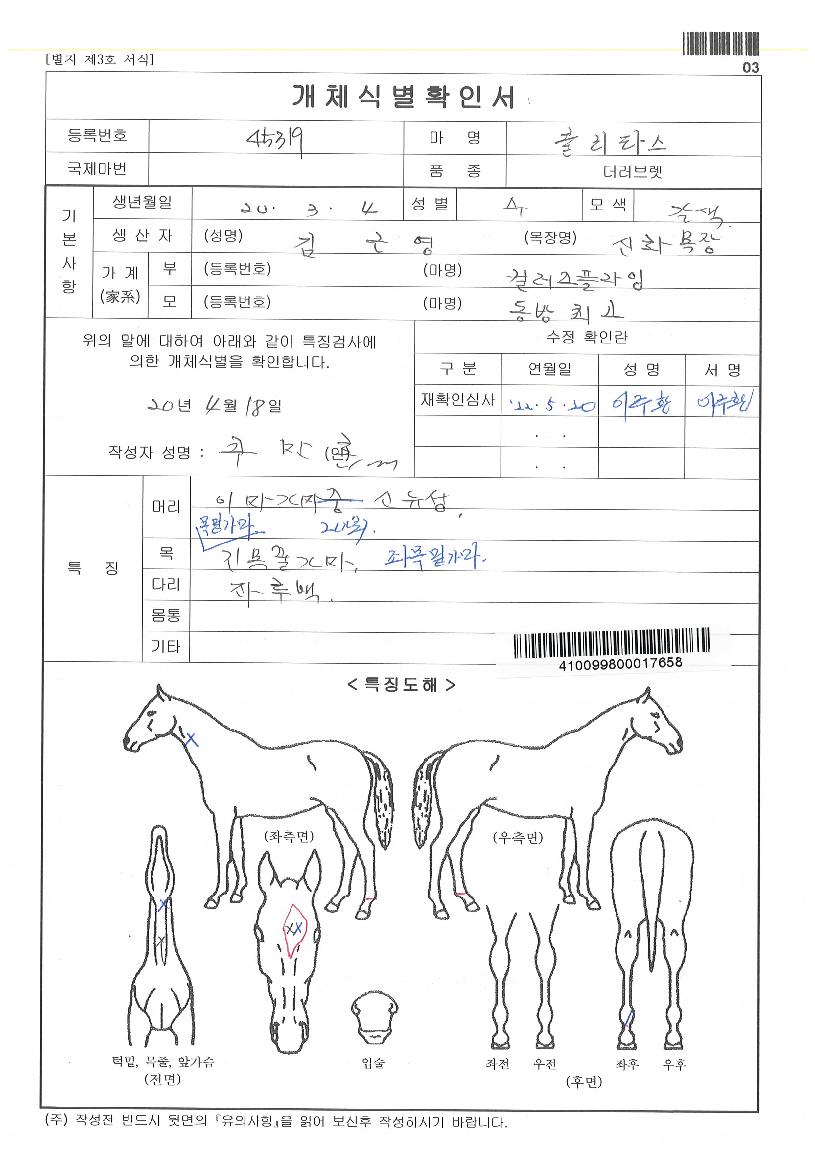 [별지 제3호 서식]
03
개체식별확인서
등록번호 45319 마 명 쿨리타스
국제마번 품 종 더러브렛
기본사항
생년월일 20. 3. 4 성별 모색 갈색
생 산 자 (성명) 김 근 영 (목장명) 진화목장
가 계 (家系)
부 (등록번호) (마명) 컬러즈플라잉
모 (등록번호) (마명) 동방최고
위의 말에 대하여 아래와 같이 특징검사에
의한 개체식별을 확인합니다.
20년 4월 18일
작성자 성명 : (인)
수정 확인란
구 분 연월일 성 명 서 명
재확인심사 '22. 5. 20 이주환 이주환
. .
. .
특 징
머리 이마가마중 신유성
목
다리 좌후백
몸통
기타
410099800017658
< 특징도해 >
(좌측면) (우측면)
턱밑, 목줄, 앞가슴
(전면)
입술
좌전 우전 좌후 우후
(후면)
(주) 작성전 반드시 뒷면의 『유의사항』을 읽어 보신후 작성하시기 바랍니다.